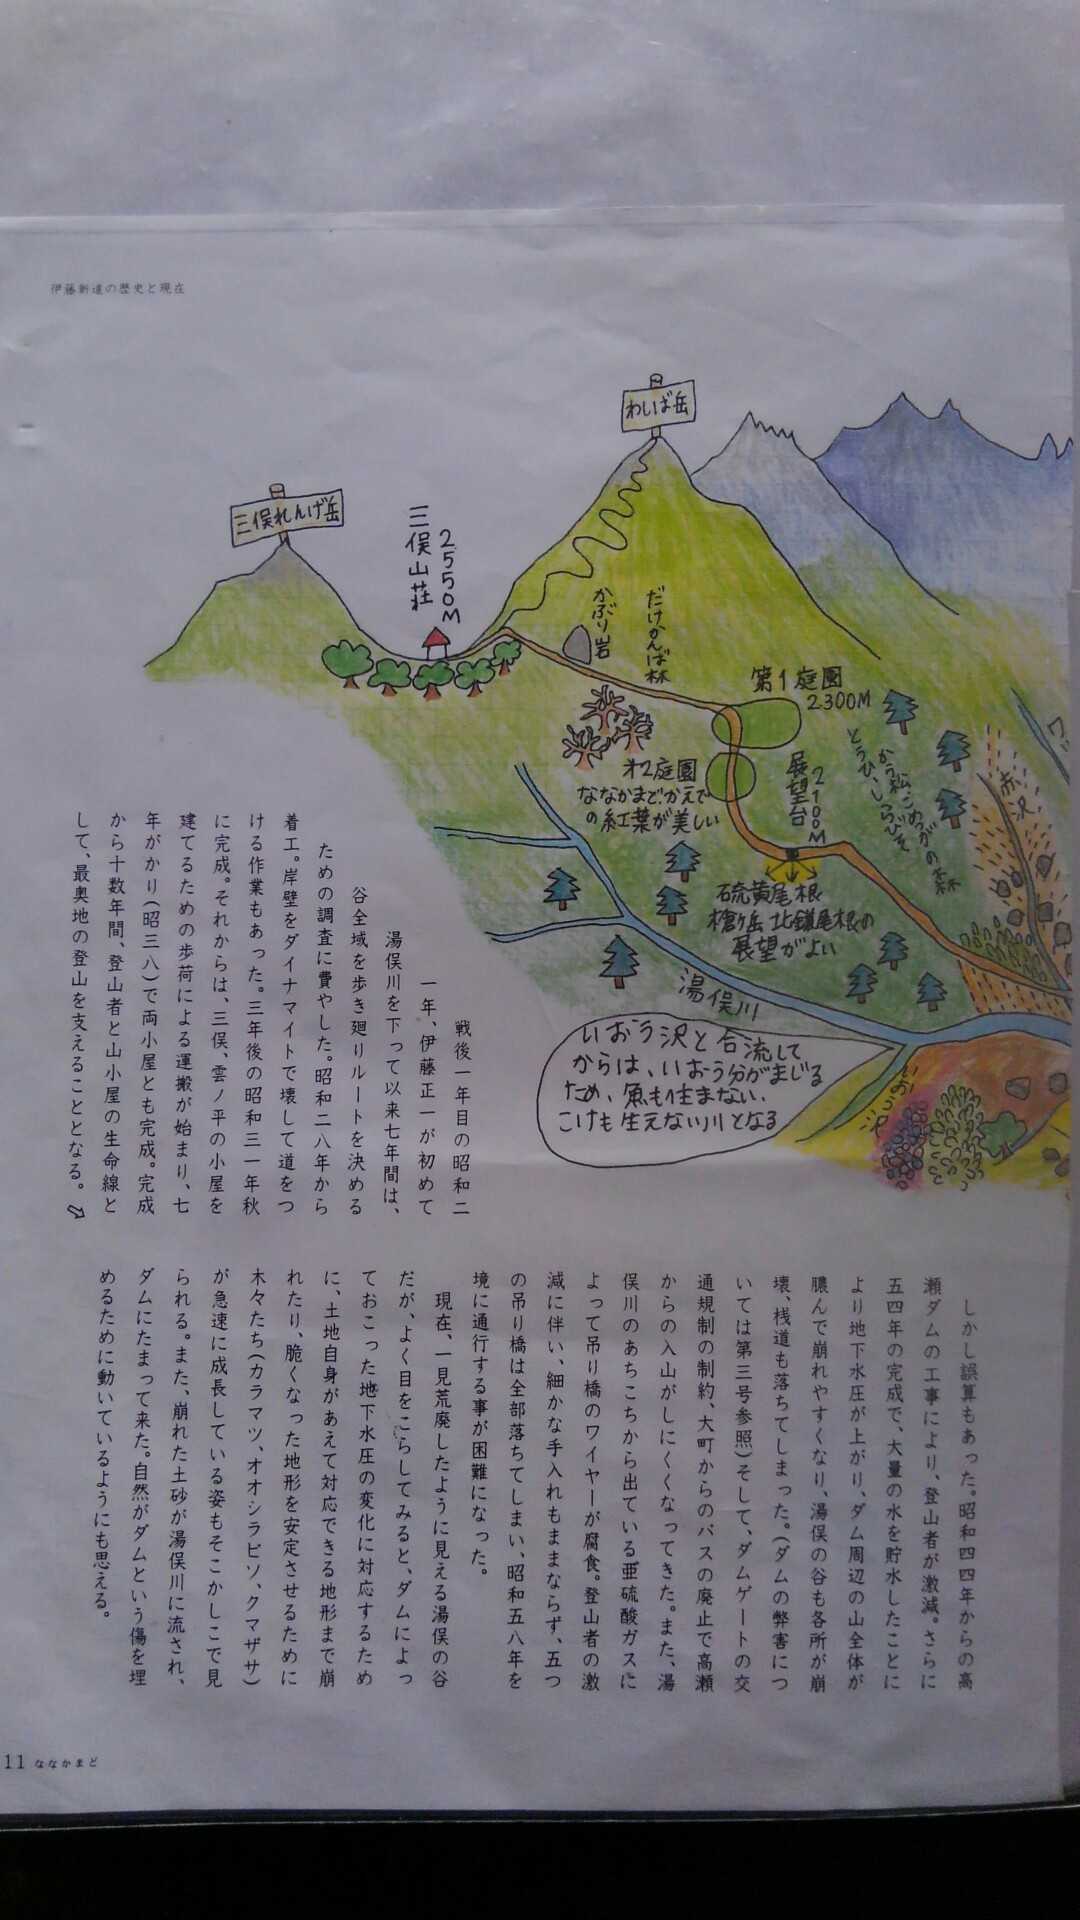 伊藤新道の歴史と現在
わしば岳
三俣れんげ岳
三俣山荘
2550M
かぶり岩
だけかんば林
第1庭園
2300M
オ2庭園
ななかまど、かえで
の紅葉が美しい
展望台
2100M
から松、こめつがの森
とうひ、しらびそ
赤沢
ワ
硫黄尾根
槍ヶ岳 北鎌尾根の
展望がよい
湯俣川
いおう沢
いおう沢と合流して
からは、いおう分がまじる
ため、魚も住まない、
こけも生えない川となる
戦後一年目の昭和二
一年、伊藤正一が初めて
湯俣川を下って以来七年間は、
谷全域を歩き廻りルートを決める
ための調査に費やした。昭和二八年から
着工。岸壁をダイナマイトで壊して道をつ
ける作業もあった。三年後の昭和三一年秋
に完成。それからは、三俣、雲ノ平の小屋を
建てるための歩荷による運搬が始まり、七
年がかり(昭三八)で両小屋とも完成。完成
から十数年間、登山者と山小屋の生命線と
して、最奥地の登山を支えることとなる。
しかし誤算もあった。昭和四四年からの高
瀬ダムの工事により、登山者が激減。さらに
五四年の完成で、大量の水を貯水したことに
より地下水圧が上がり、ダム周辺の山全体が
膿んで崩れやすくなり、湯俣の谷も各所が崩
壊、桟道も落ちてしまった。(ダムの弊害につ
いては第三号参照)そして、ダムゲートの交
通規制の制約、大町からのバスの廃止で高瀬
からの入山がしにくくなってきた。また、湯
俣川のあちこちから出ている亜硫酸ガスに
よって吊り橋のワイヤーが腐食。登山者の激
減に伴い、細かな手入れもままならず、五つ
の吊り橋は全部落ちてしまい、昭和五八年を
境に通行する事が困難になった。
現在、一見荒廃したように見える湯俣の谷
だが、よく目をこらしてみると、ダムによっ
ておこった地下水圧の変化に対応するため
に、土地自身があえて対応できる地形まで崩
れたり、脆くなった地形を安定させるために
木々たち(カラマツ、オオシラビソ、クマザサ)
が急速に成長している姿もそこかしこで見
られる。また、崩れた土砂が湯俣川に流され、
ダムにたまって来た。自然がダムという傷を埋
めるために動いているようにも思える。
11 ななかまど